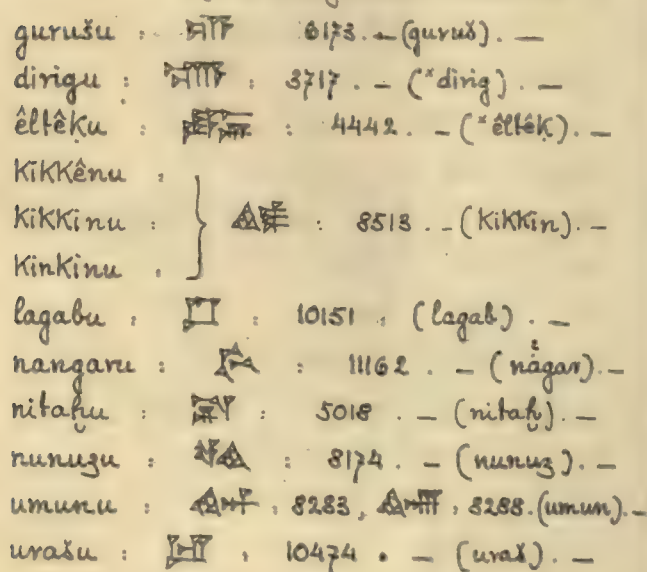 gurušu : 6173. – (guruš). –
dirigu : : 3717. – (ˣdirig). –
êltêḳu : : 4442. – (ˣêltêḳ). –
Kikkênu :
KiKKinu : : 8513. – (KiKKin). –
Kinkinu :
lagabu : : 10151 : (lagab). –
nangaru : : 11162. – (nagar). –
nitaḫu : : 5018. – (nitaḫ). –
nunuzu : : 8174. – (nunuz). –
umunu : : 8283, : 8288. (umun). –
urašu : : 10474. – (uraš). –